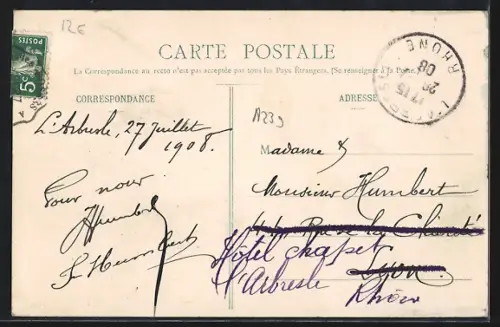 12€
POSTES
5c
CARTE POSTALE
La Correspondance au recto n'est pas acceptée par tous les Pays Étrangers. (Se renseigner à la Poste.)
CORRESPONDANCE
L'Arbresle, 27 Juillet
1908.
Pour nous
JHumbert
F Humbert
ADRESSE
A239
RHONE
17 15
08
Madame &
Monsieur Humbert
44 Rue de la Charité
Lyon
Hôtel Chapet
l'Arbresle
Rhône